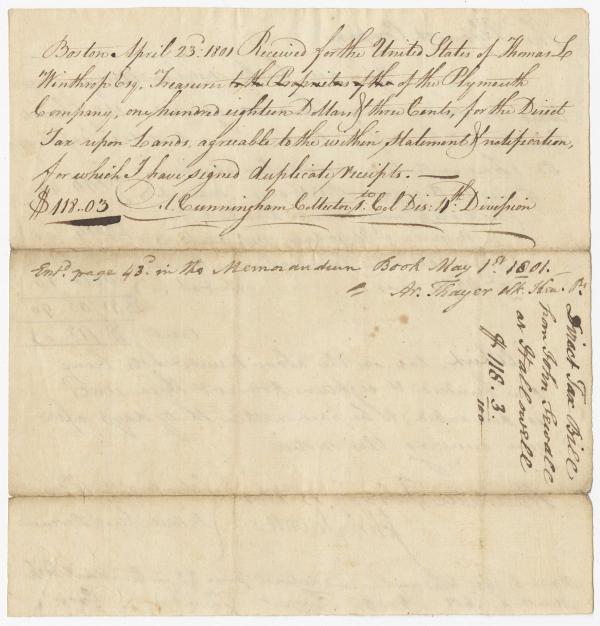 Boston April 23d: 1801 Received for the United States of Thomas L
Winthrop Esq, Treasurer to the Proprietors of the of the Plymouth
Company, one hundred eighteen Dollars & three Cents, for the Direct
Tax upon Lands, agreable to the within Statement & notification,
for which I have signed duplicate receipts. —
$118..03 A. Cunningham Collector 1st: Col Dis: 11th Division
Entd. page 43d. in the Memorandum Book May 1st 1801.
Ar. Thayer
Direct Tax Bill
from John Sewall
at Hallowell
$ 118. 3.
100